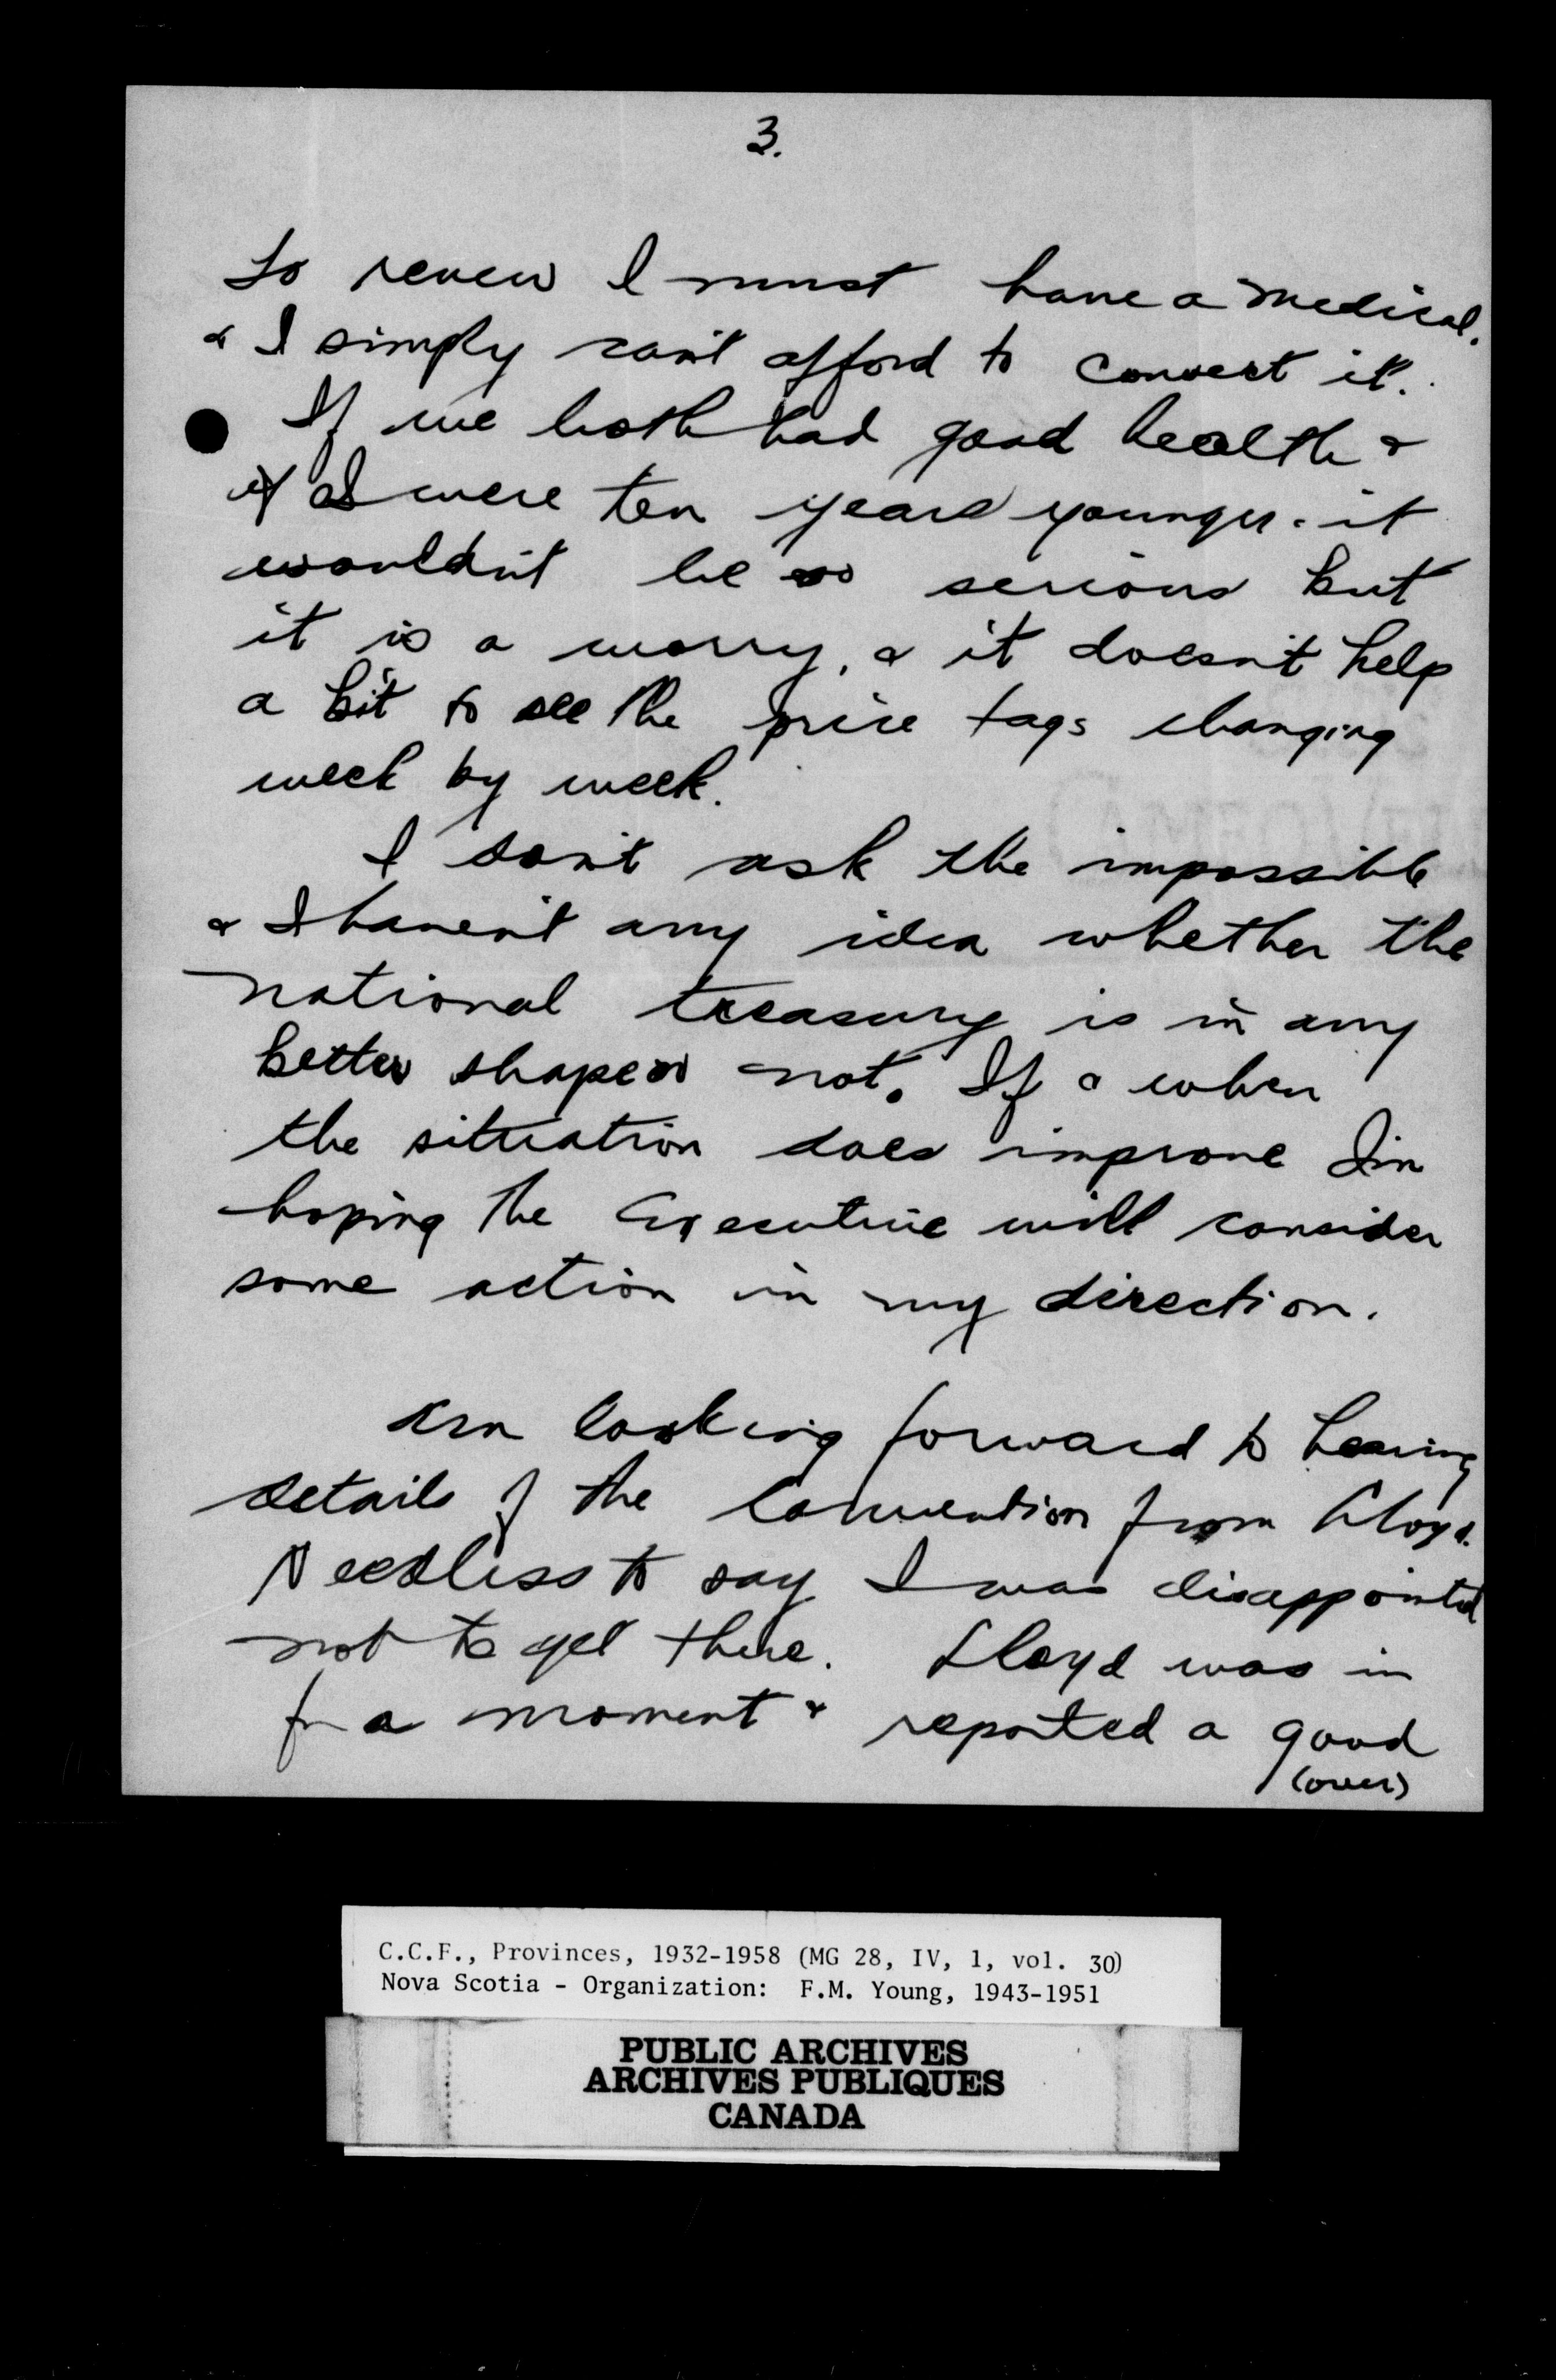 3.
to renew I must have a medical.
& I simply can't afford to convert it.
If we both had good health &
if I were ten years younger - it
wouldn't be so serious but
it is a worry, & it doesn't help
a bit to see the price tags changing
week by week.
I don't ask the impossible
& I haven't any idea whether the
national treasury is in any
better shape or not. If & when
the situation does improve I'm
hoping the Executive will consider
some action in my direction.
Am looking forward to hearing
details of the Convention from Lloyd.
Needless to say I was disappointed
not to get there. Lloyd was in
for a moment & reported a good
(over)
C.C.F., Provinces, 1932-1958 (MG 28, IV, 1, vol. 30)
Nova Scotia - Organization: F.M. Young, 1943-1951
PUBLIC ARCHIVES
ARCHIVES PUBLIQUES
CANADA